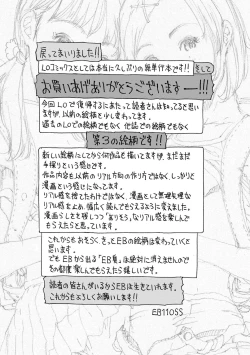 戻ってまいりました!!
LOコミックスとしては本当に久しぶりの単行本です!!そして
お買いあげありがとうございますーー!!!
今回LOで復帰するにあたって読者さんは知ってると思い
ますが、以前の絵柄と少し変わってます。
過去のLOでの絵柄でもなく他誌での絵柄でもなく
第3の絵柄です!!
新しい絵柄にしてから何作品も描いてますが、まだまだ
手探りという感じです。
作品内容も以前のリアル方向の作り方ではなく、しっかりと
漫画という感じになってます。
リアル感を捨てたわけではなく、漫画として無理矢理な
エンドでもよめ、幅広く読んでもらえるように変えました。
漫画らしさを得しつつ「ありそう」なリアル感を楽しんで
もらえたらと思っています。
これからもおそらくきっとEBの絵柄は変わっていくと
思います。
でもEBから出る「EB臭」は絶対に消えませんので
その都度楽しんでもらえたら嬉しいです。
読者の皆さんがいるからEBは生きていれます。
これからもよろしくお願いします!!
EB110SS